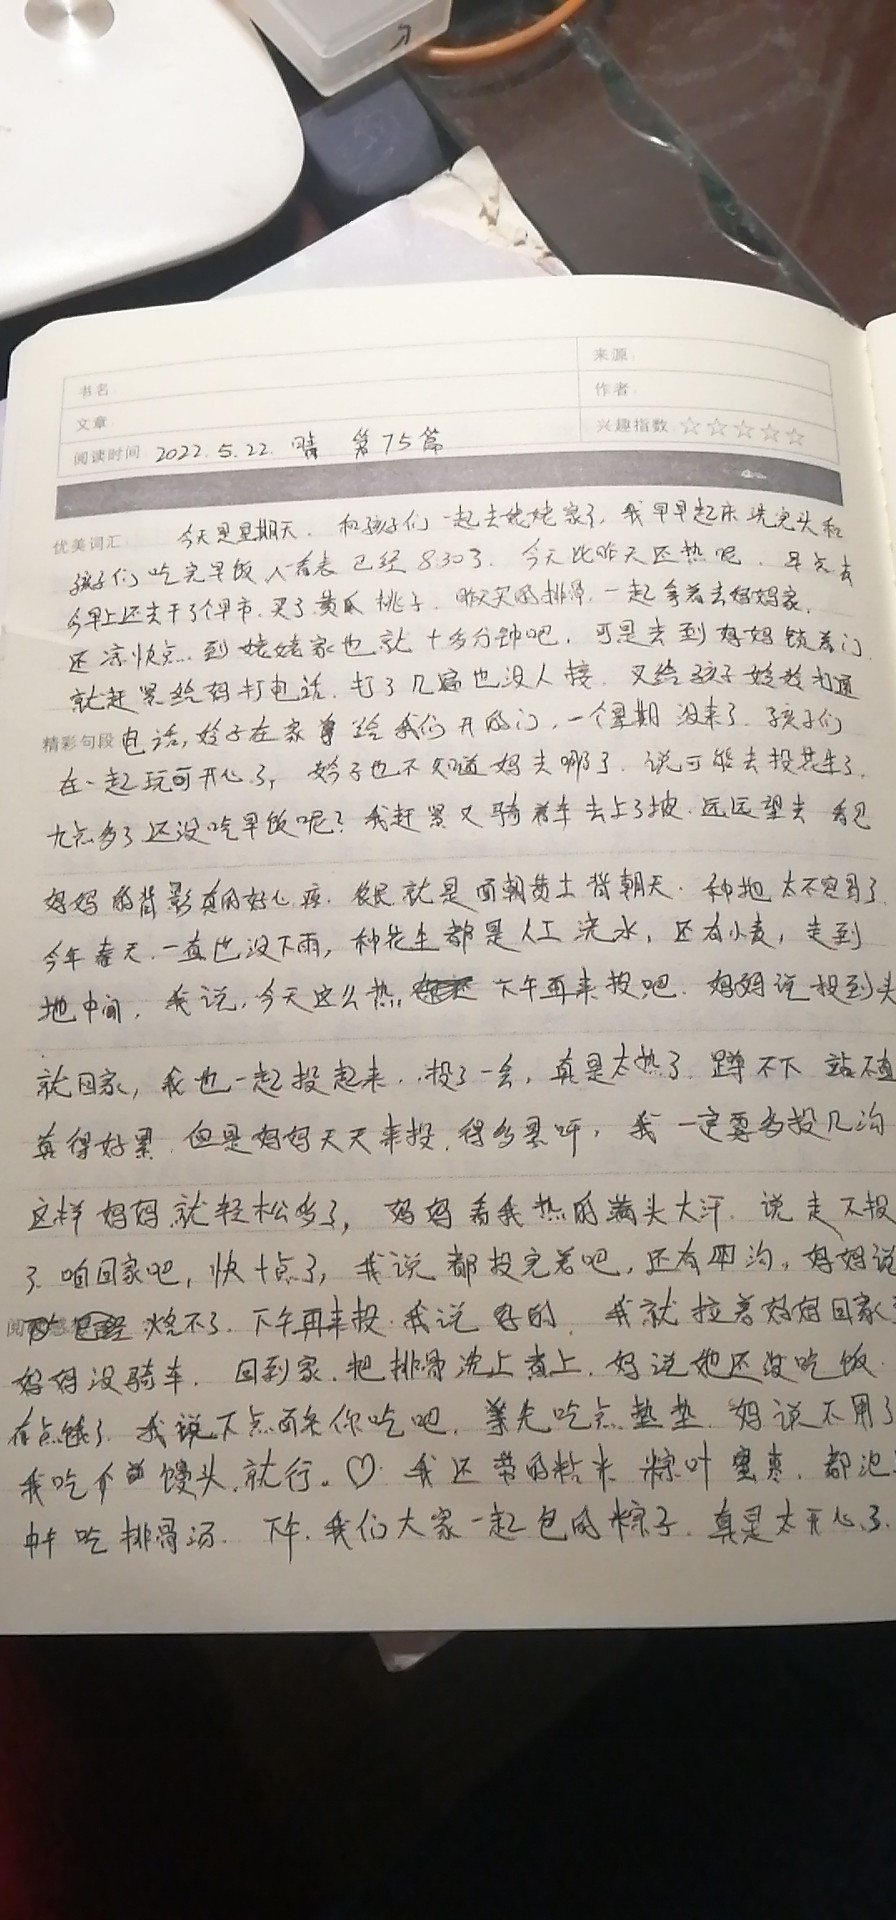 书名:
来源:
文章:
作者:
阅读时间: 2022.5.22. 晴 第75篇
兴趣指数: ☆☆☆☆☆
优美词汇 今天是星期天. 和孩子们一起去姥姥家了, 我早早起床洗完头和
孩子们吃完早饭一看表已经8:30了. 今天比昨天还热呢. 早点去
今早上还去干了个早市. 买了黄瓜桃子. 昨天买的排骨. 一起拿着去妈妈家.
还凉快点. 到姥姥家也就十多分钟吧. 可是去到妈妈锁着门.
就赶紧给妈打电话. 打了几遍也没人接. 又给孩子妗妗沟通
精彩句段 电话, 妗子在家给我们开的门, 一个星期没来了. 孩子们
在一起玩可开心了, 妗子也不知道妈去哪了. 说可能去投花生了.
九点多了还没吃早饭呢? 我赶紧又骑着车去上了坡. 远远望去 看见
妈妈的背影真的好心疼. 农民就是面朝黄土背朝天. 种地太不容易了.
今年春天. 一直也没下雨, 种花生都是人工浇水, 还有小麦, 走到
地中间, 我说, 今天这么热, 下午再来投吧. 妈妈说投到头
就回家, 我也一起投起来. 投了一会, 真是太热了. 蹲不下 站不直
真得好累. 但是妈妈天天来投, 得多累呀, 我一定要多投几沟
这样妈妈就轻松多了, 妈妈看我热的满头大汗. 说走不投
了. 咱回家吧, 快十点了, 我说都投完着吧, 还有四沟, 妈妈说
阅 烧不了. 下午再来投. 我说好的. 我就拉着妈妈回家
妈妈没骑车. 回到家. 把排骨洗上煮上. 妈说她还没吃饭.
有点饿了. 我说下点面条你吃吧. 等先吃点垫垫. 妈说不用了
我吃个馒头就行。♡. 我还带的粘米 粽叶 蜜枣. 都泡
中午吃排骨汤. 下午. 我们大家一起包的粽子. 真是太开心了.